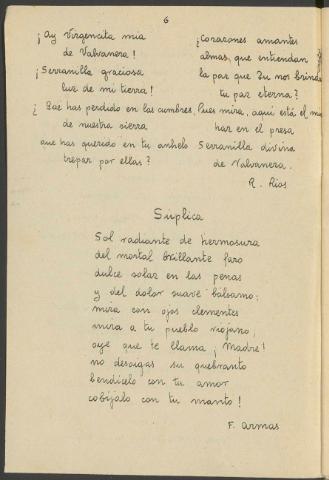 6
¡Ay Virgencita mía
de Valvanera!
¡Serranilla graciosa
luz de mi tierra!
¿ has perdido en las cumbres
de nuestra sierra
que has querido en tu anhelo
trepar por ellas?
¿Corazones amantes
almas, que entiendan
la paz que Tu nos
tu paz eterna?
Pues mira, aquí está el
har en el presa
Serranilla divina
de Valvanera.
R. Rios
Súplica
Sol radiante de hermosura
del mortal brillante faro
dulce solaz en las penas
y del dolor suave bálsamo;
mira con ojos clementes
mira a tu pueblo riojano;
oye que te llama ¡Madre!
no desoigas su quebranto
bendícelo con tu amor
cobíjalo con tu manto!
F. Armas